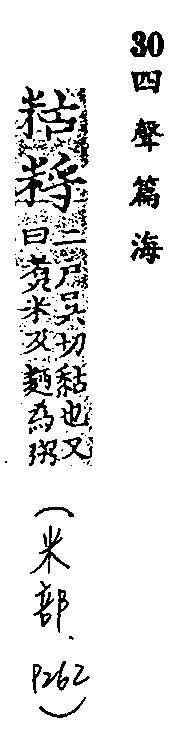 30 四聲篇海
二戶吳切黏也又
曰煮米及麵為粥
(米部. P262)